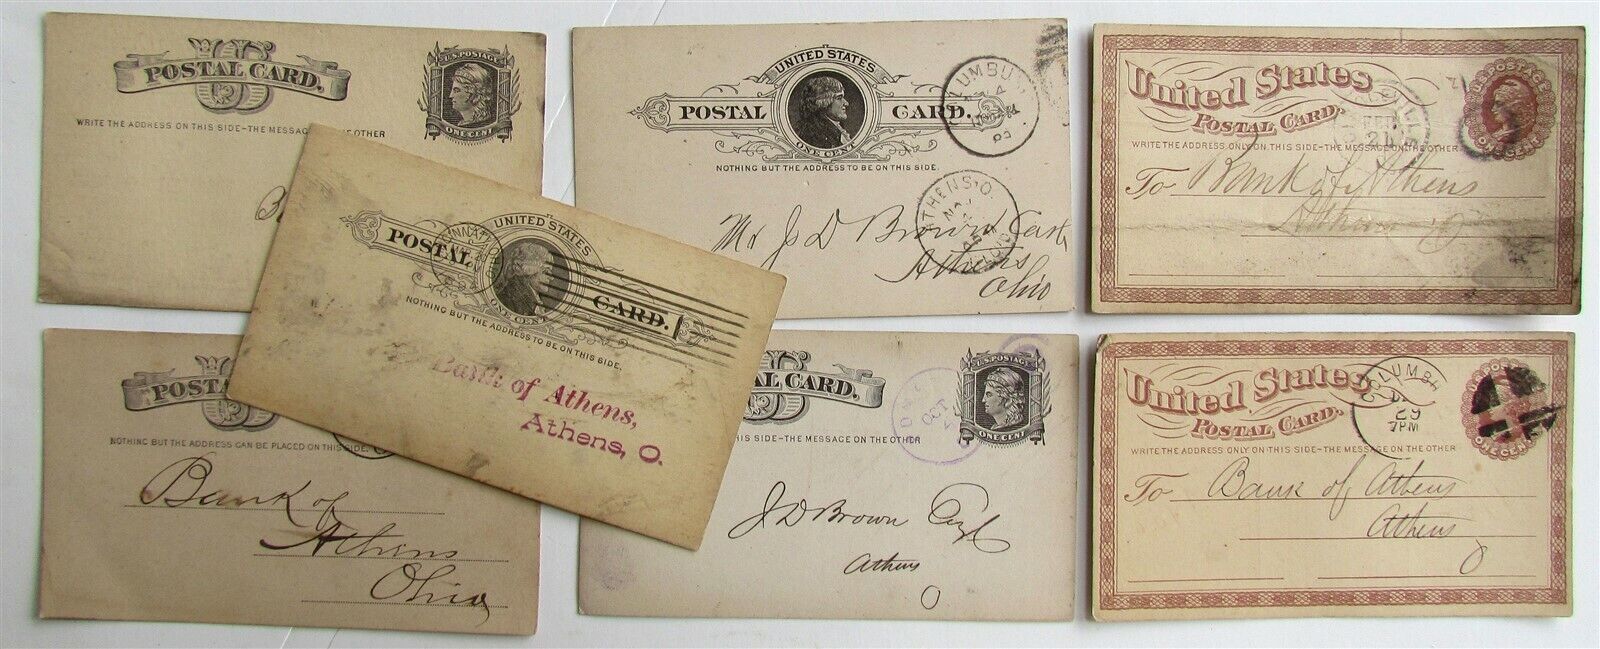 POSTAL CARD.
U.S. POSTAGE
ONE CENT
WRITE THE ADDRESS ON THIS SIDE-THE MESSAGE THE OTHER
UNITED STATES
POSTAL CARD.
ONE CENT
NOTHING BUT THE ADDRESS TO BE ON THIS SIDE.
ATHENS, O.
Mr J D Brown Cash
Athens
Ohio
United States
POSTAL CARD.
U.S. POSTAGE
ONE CENT
WRITE THE ADDRESS ONLY ON THIS SIDE-THE MESSAGE ON THE OTHER
FEB
24
To Bank of Athens
Athens O
UNITED STATES
POSTAL CARD.
ONE CENT
NOTHING BUT THE ADDRESS TO BE ON THIS SIDE.
Bank of Athens,
Athens, O.
POSTAL
NOTHING BUT THE ADDRESS CAN BE PLACED ON THIS SIDE.
Bank of
Athens
Ohio
CARD.
U.S. POSTAGE
ONE CENT
THIS SIDE-THE MESSAGE ON THE OTHER
OCT
J D Brown
Athens
O
United States
POSTAL CARD.
ONE CENT
WRITE THE ADDRESS ONLY ON THIS SIDE-THE MESSAGE ON THE OTHER
29
7PM
To Bank of Athens
Athens
O